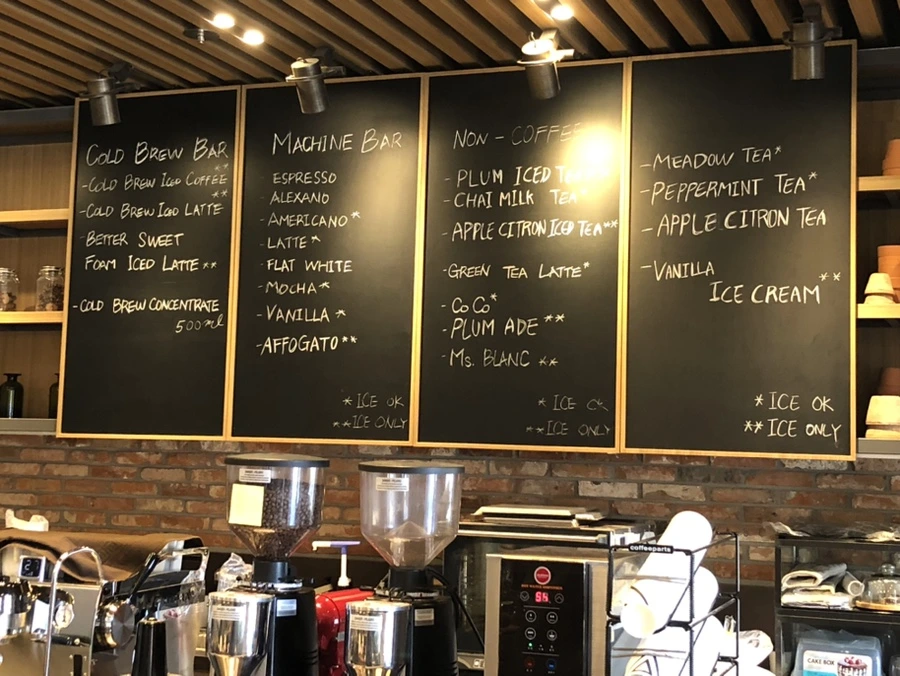 COLD BREW BAR
-COLD BREW ICED COFFEE**
-COLD BREW ICED LATTE**
-BETTER SWEET
FOAM ICED LATTE**
-COLD BREW CONCENTRATE
500ml
MACHINE BAR
ESPRESSO
-ALEXANO
-AMERICANO*
-LATTE*
-FLAT WHITE
-MOCHA*
-VANILLA *
-AFFOGATO**
*ICE OK
**ICE ONLY
NON-COFFEE
-PLUM ICED
-CHAI MILK TEA
-APPLE CITRON ICED TEA**
-GREEN TEA LATTE*
-CoCo*
-PLUM ADE**
-Ms. BLANC **
*ICE OK
**ICE ONLY
-MEADOW TEA*
-PEPPERMINT TEA*
-APPLE CITRON TEA
-VANILLA
ICE CREAM**
*ICE OK
**ICE ONLY
coffeeparts
CAKE BOX